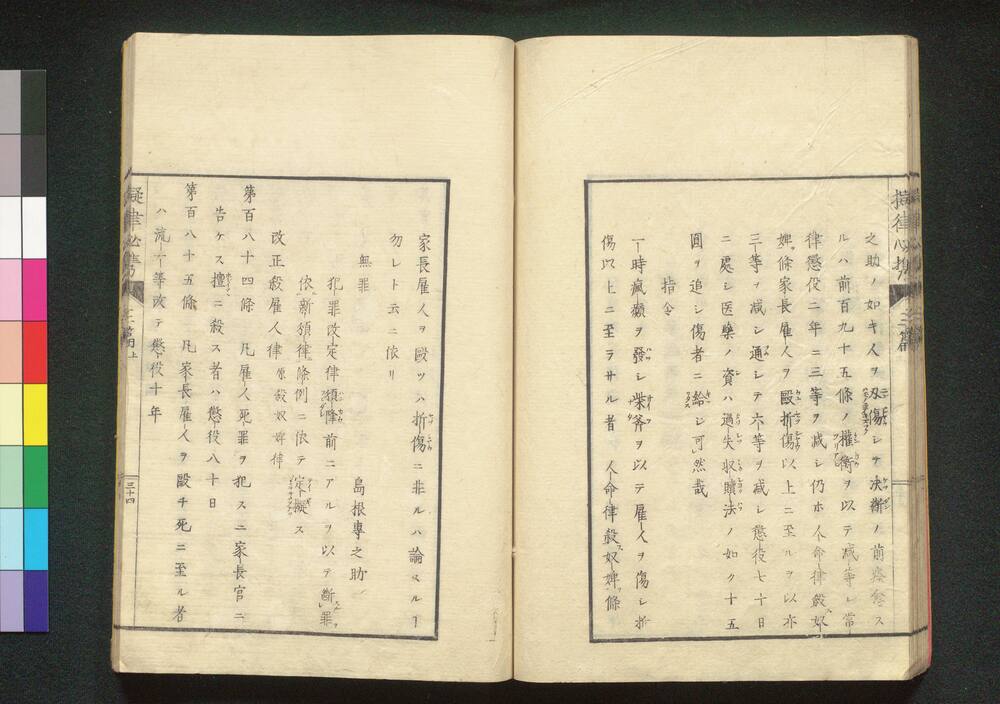 之助ノ如キ人ヲ刃傷シテ決衝ノ前
ルハ前百九十五條ノ權衡ヲ以テ減等シ常
律懲役二年ニ三等ヲ減シ仍ホ人命律殺奴
婢條家長雇人ヲ毆折傷以上ニ至ルヲ以亦
三等ヲ減シ通シテ六等ヲ減シ懲役七十日
ニ處シ医藥ノ資ハ過失収贖法ノ如ク十五
圓ヲ追シ傷者ニ給シ可然哉
指令
一時瘋癲ヲ發シ柴斧ヲ以テ雇人ヲ傷シ折
傷以上ニ至ラサル者人命律殺奴婢條
三篇
家長雇人ヲ毆ツハ折傷ニ非ルハ論スルヿ
勿レト云ニ依リ
無罪
島根專之助
犯罪改定律頒降前ニアルヲ以テ斷罪
依新頒律條例ニ依テ定擬ス
改正殺雇人律 原殺奴婢律
第百八十四條 凡雇人死罪ヲ犯スニ家長官ニ
告ケス擅ニ殺ス者ハ懲役八十日
第百八十五條 凡家長雇人ヲ毆チ死ニ至ル者
ハ流一等改テ懲役十年
三十四